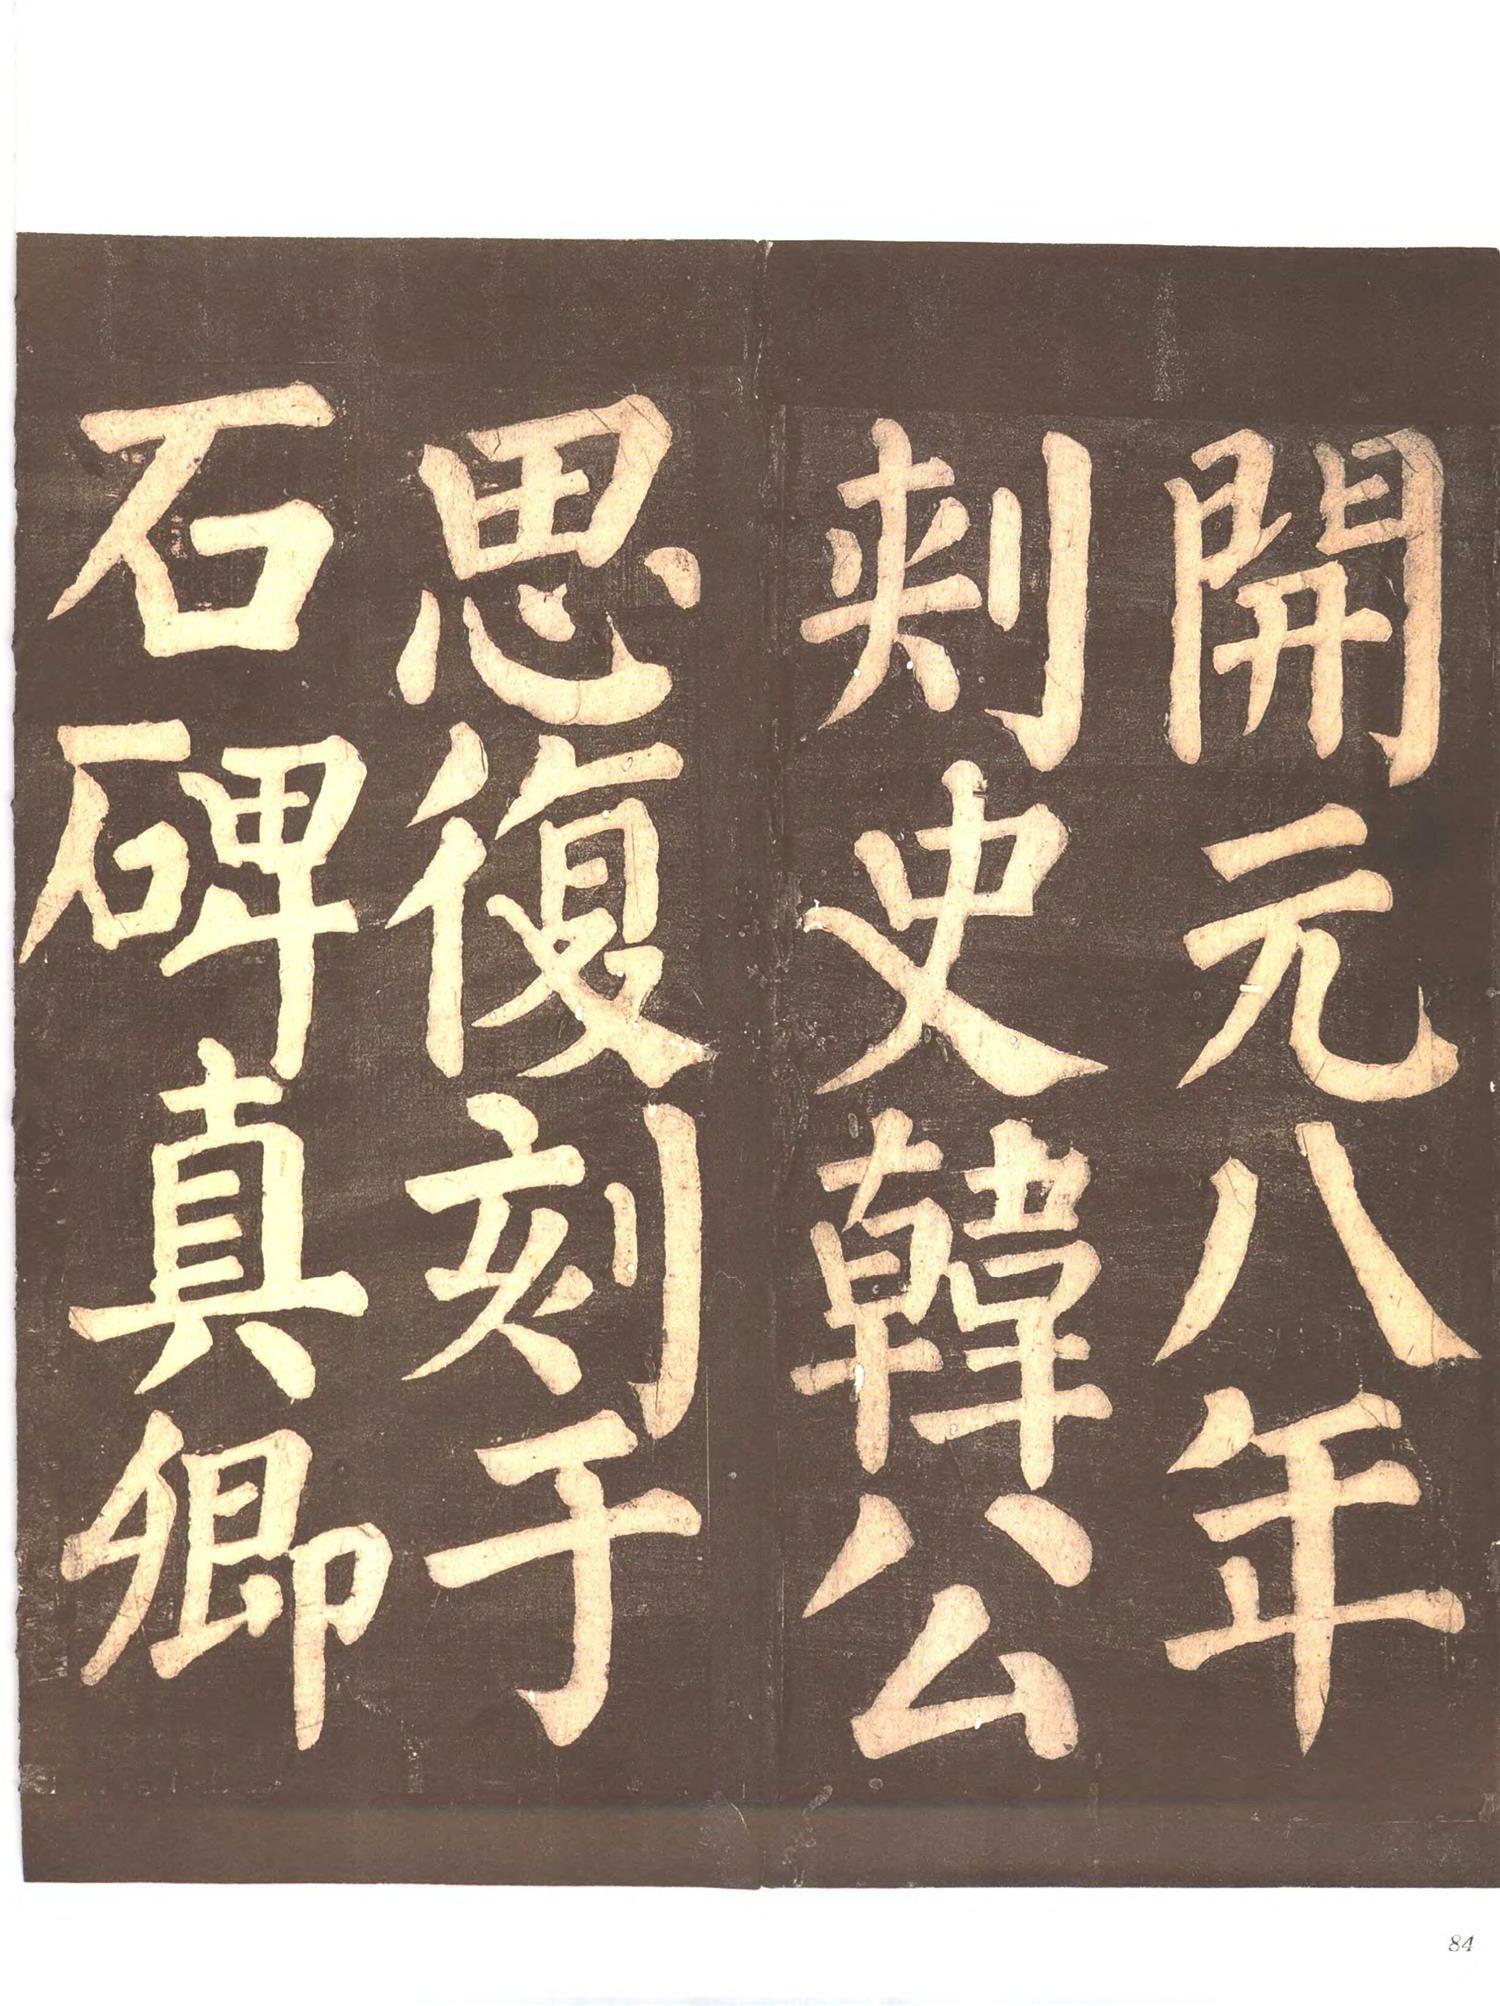 開元八年
刾史韓公
思復刻于
石碑真卿
84